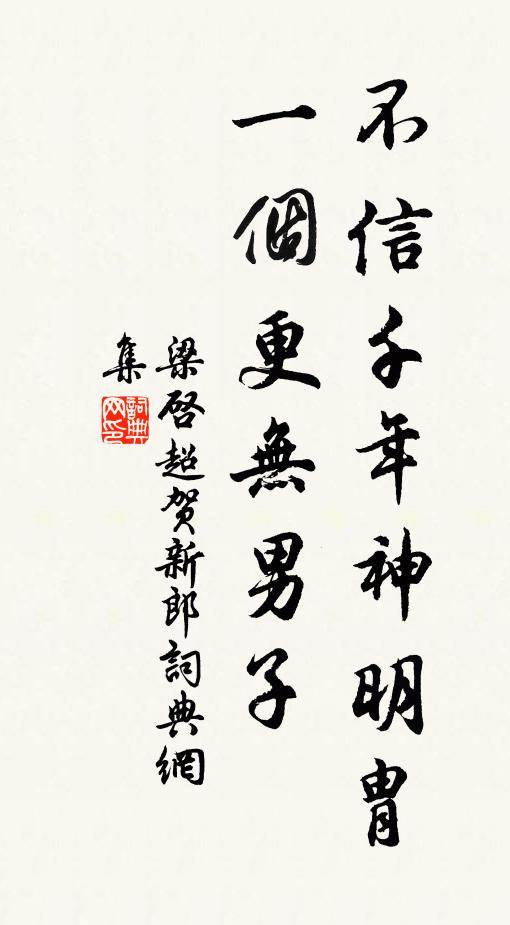 不信千年神明胄
一個更無男子
梁啓超贺新郎詞典網
集
詞典网印